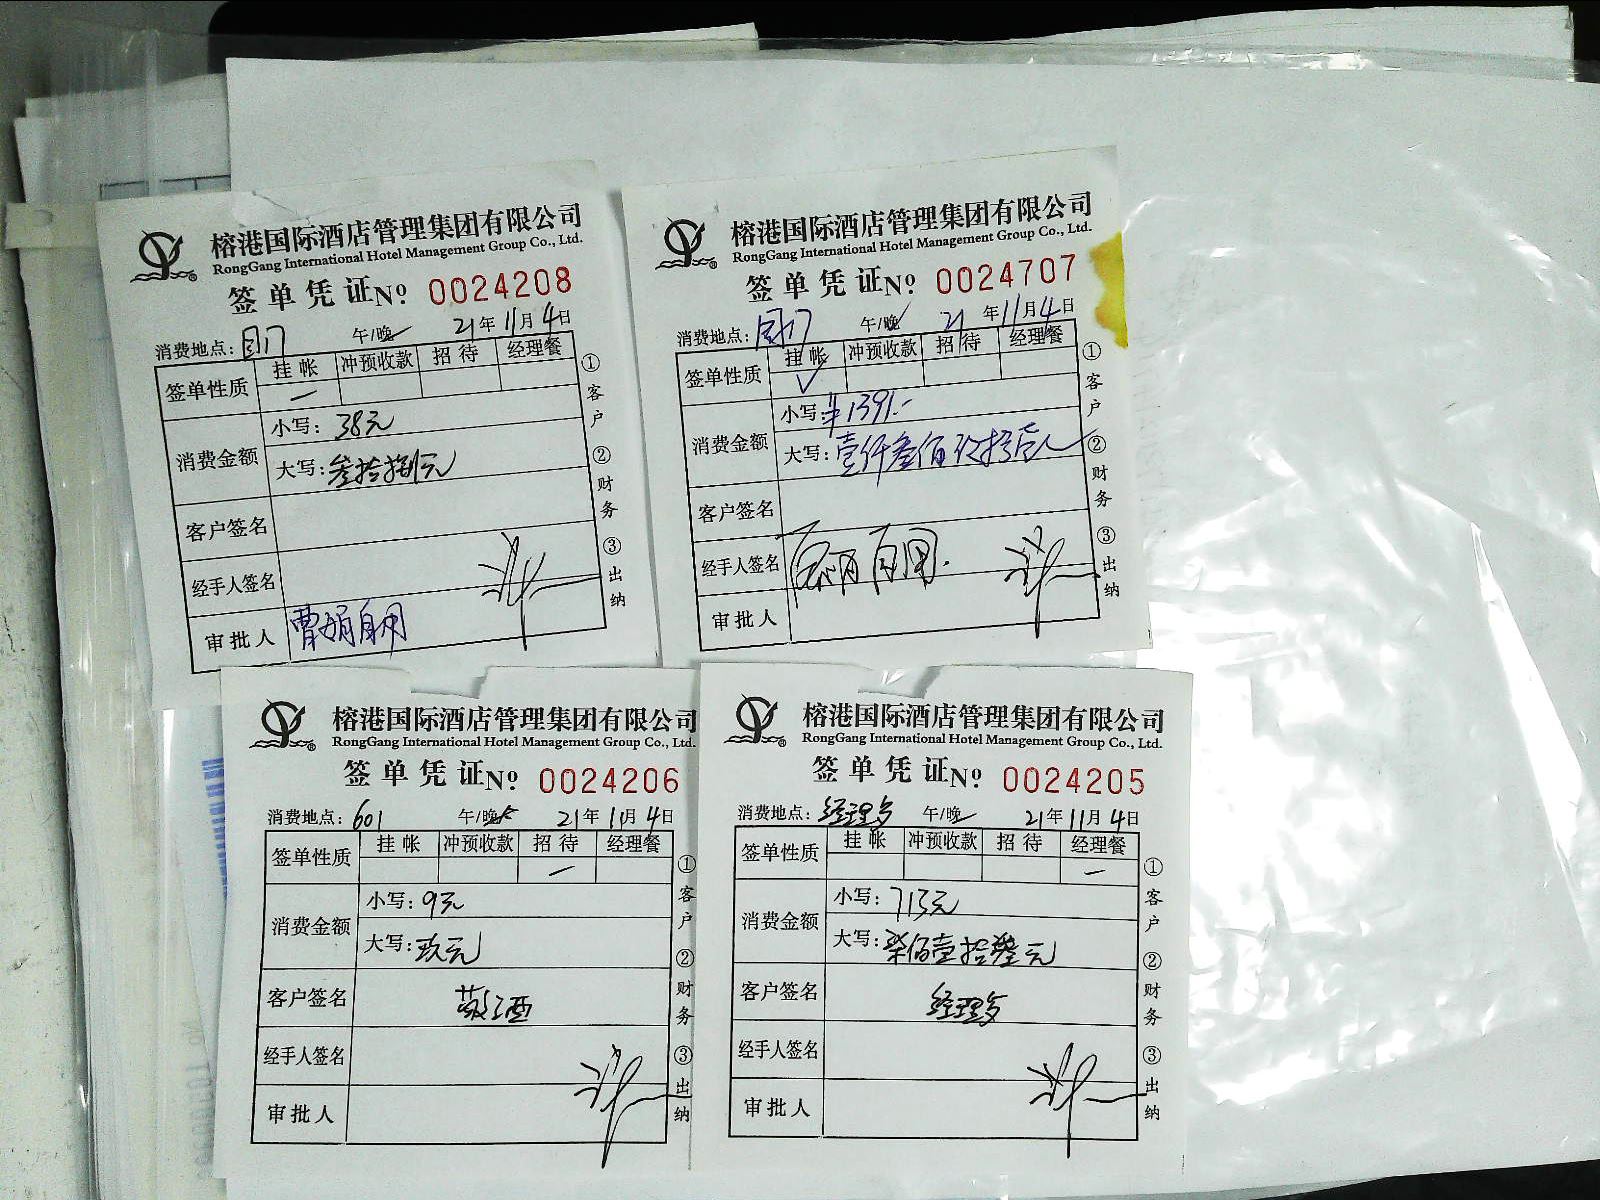 榕港国际酒店管理集团有限公司
RongGang International Hotel Management Group Co., Ltd.
签单凭证 No 0024208
消费地点： 午/晚 21年11月4日
签单性质 挂帐 冲预收款 招待 经理餐
消费金额 小写：38元
大写：叁拾捌元
客户签名
经手人签名
审批人 曹娟自用
①客户 ②财务 ③出纳
榕港国际酒店管理集团有限公司
RongGang International Hotel Management Group Co., Ltd.
签单凭证 No 0024707
消费地点： 午/晚 21年11月4日
签单性质 挂帐 冲预收款 招待 经理餐
✓
消费金额 小写：¥1391.-
大写：壹仟叁佰玖拾壹
客户签名
经手人签名 自用.
审批人
①客户 ②财务 ③出纳
榕港国际酒店管理集团有限公司
RongGang International Hotel Management Group Co., Ltd.
签单凭证 No 0024206
消费地点：601 午/晚 21年11月4日
签单性质 挂帐 冲预收款 招待 经理餐
消费金额 小写：9元
大写：玖元
客户签名 敬酒
经手人签名
审批人
①客户 ②财务 ③出纳
榕港国际酒店管理集团有限公司
RongGang International Hotel Management Group Co., Ltd.
签单凭证 No 0024205
消费地点：经理 午/晚 21年11月4日
签单性质 挂帐 冲预收款 招待 经理餐
消费金额 小写：713元
大写：柒佰壹拾叁元
客户签名 经理
经手人签名
审批人
①客户 ②财务 ③出纳